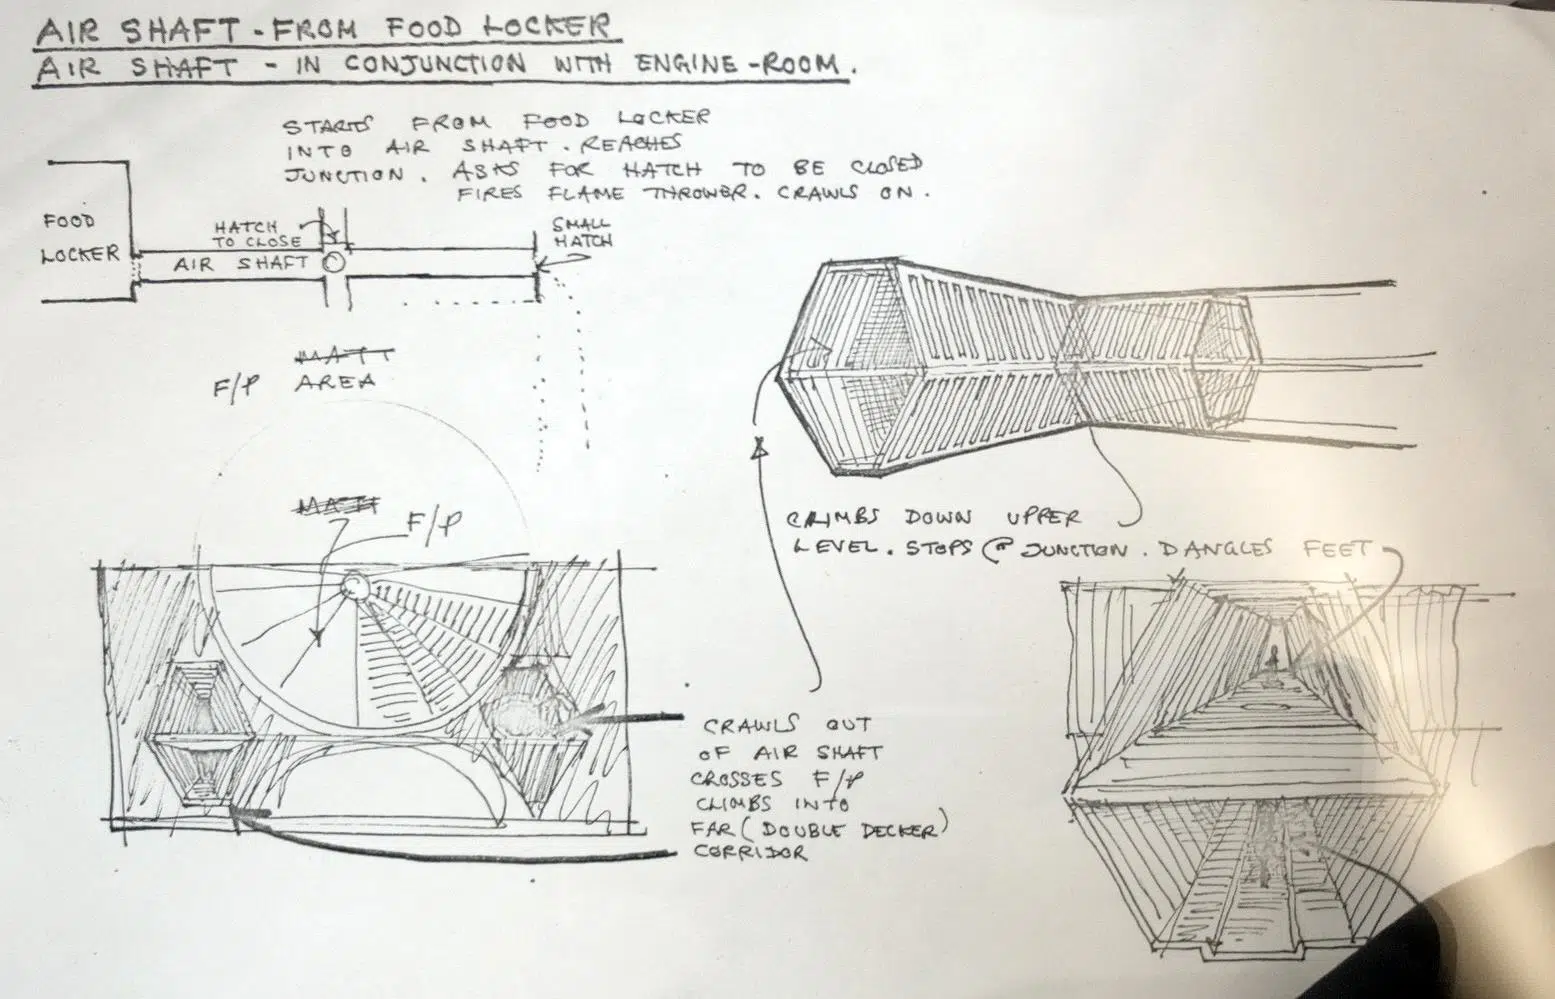 AIR SHAFT - FROM FOOD LOCKER
AIR SHAFT - IN CONJUNCTION WITH ENGINE-ROOM.
STARTS FROM FOOD LOCKER
INTO AIR SHAFT. REACHES
JUNCTION. ASKS FOR HATCH TO BE CLOSED
FIRES FLAME THROWER. CRAWLS ON.
FOOD
LOCKER
HATCH
TO CLOSE
AIR SHAFT
SMALL
HATCH
MATT
F/P AREA
MATT
F/P
CLIMBS DOWN UPPER
LEVEL. STOPS @ JUNCTION. DANGLES FEET
CRAWLS OUT
OF AIR SHAFT
CROSSES F/P
CLIMBS INTO
FAR (DOUBLE DECKER)
CORRIDOR